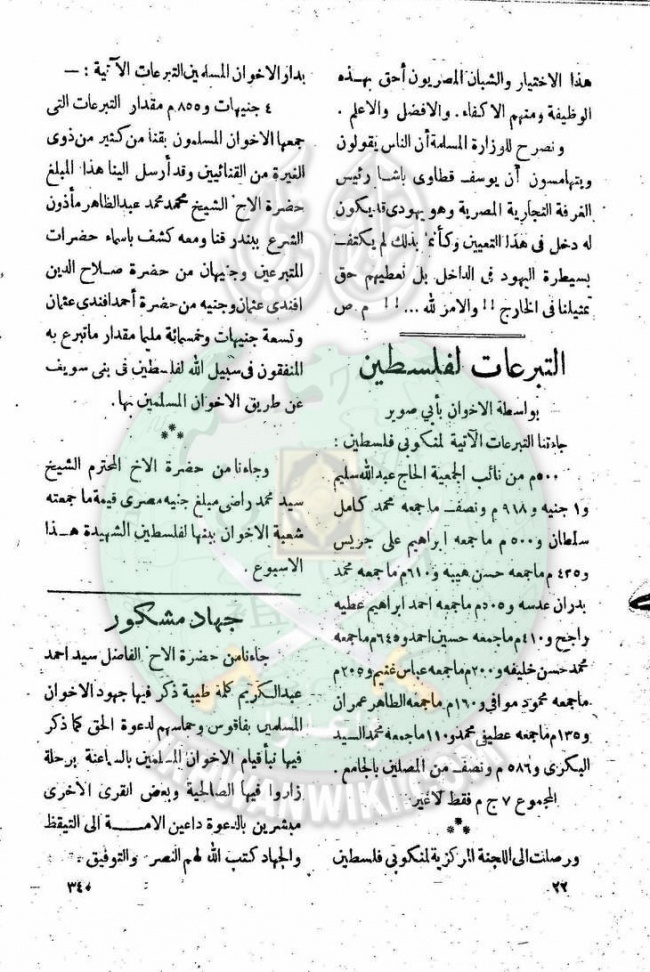 هذا الاختيار والشبان المصريون أحق بهذه
الوظيفة ومنهم الاكفاء. والافضل والاعلم.
ونصرح للوزارة المسلمة أن الناس يقولون
ويتهامسون أن يوسف قطاوى باشا رئيس
الغرفة التجارية المصرية وهو يهودى قد يكون
له دخل فى هذا التعيين وكأنما بذلك لم يكتف
بسيطرة اليهود فى الداخل بل نعطيهم حق
تمثيلنا فى الخارج !! والامر لله ... !! م ص
التبرعات لفلسطين
بواسطة الاخوان بأبي صوير
جاءتنا التبرعات الآتية لمنكوبى فلسطين :
٥٠٠م من نائب الجمعية الحاج عبد الله سليم
و١ جنيه و٩١٨ م ونصف ماجمعه محمد كامل
سلطان و٥٠٠م ماجمعه ابراهيم على جريس
و٤٣٥ م ماجمعه حسن هيبه و٦١٠م ماجمعه محمد
بدران عدسه و٥٠٥م ماجمعه احمد ابراهيم عطيه
راجح و٤١٠م ماجمعه حسين احمد و٦٤٥م ماجمعه
محمد حسن خليفه و٢٠٠م ماجمعه عباس غنيم و٢٠٥م
ماجمعه محمود موافى و١٦٠م ماجمعه الطاهر عمران
و١٣٥م ماجمعه عطيفى محمد و١١٠ ماجمعه محمد السيد
البكرى و٥٨٦ م ونصف من المصلين بالجامع.
المجموع ٧ ج م فقط لاغير
ورصلت الى اللجنة المركزية لمنكوبى فلسطين
٢٢
بدار الاخوان المسلمين التبرعات الآتية : —
٤ جنيهات و٨٥٥م مقدار التبرعات التى
جمعها الاخوان المسلمون بقنا من كثير من ذوى
الغيرة من القنائيين وقد أرسل الينا هذا المبلغ
حضرة الاخ الشيخ محمد محمد عبد الظاهر مأذون
الشرع ببندر قنا ومعه كشف باسماء حضرات
المتبرعين وجنيهان من حضرة صلاح الدين
افندى عثمان وجنيه من حضرة أحمد افندى عثمان
وتسعة جنيهات وخمسمائة مليما مقدار ماتبرع به
المنفقون فى سبيل الله لفلسطين فى بنى سويف
عن طريق الاخوان المسلمين بها.
وجاءنا من حضرة الاخ المحترم الشيخ
سيد محمد راضى مبلغ جنيه مصرى قيمة ما جمعته
شعبة الاخوان ببنها لفلسطين الشهيدة هذا
الاسبوع.
جهاد مشكور
جاءنا من حضرة الاخ الفاضل سيد احمد
عبد الكريم كلمة طيبة ذكر فيها جهود الاخوان
المسلمين بفاقوس وحماسهم لدعوة الحق كما ذكر
فيها نبأ قيام الاخوان المسلمين بالسماعنة برحلة
زاروا فيها الصالحية وبعض القرى الأخرى
مبشرين بالدعوة داعين الامة الى التيقظ
والجهاد كتب الله لهم النصر والتوفيق.
IKHWANWIKI.COM